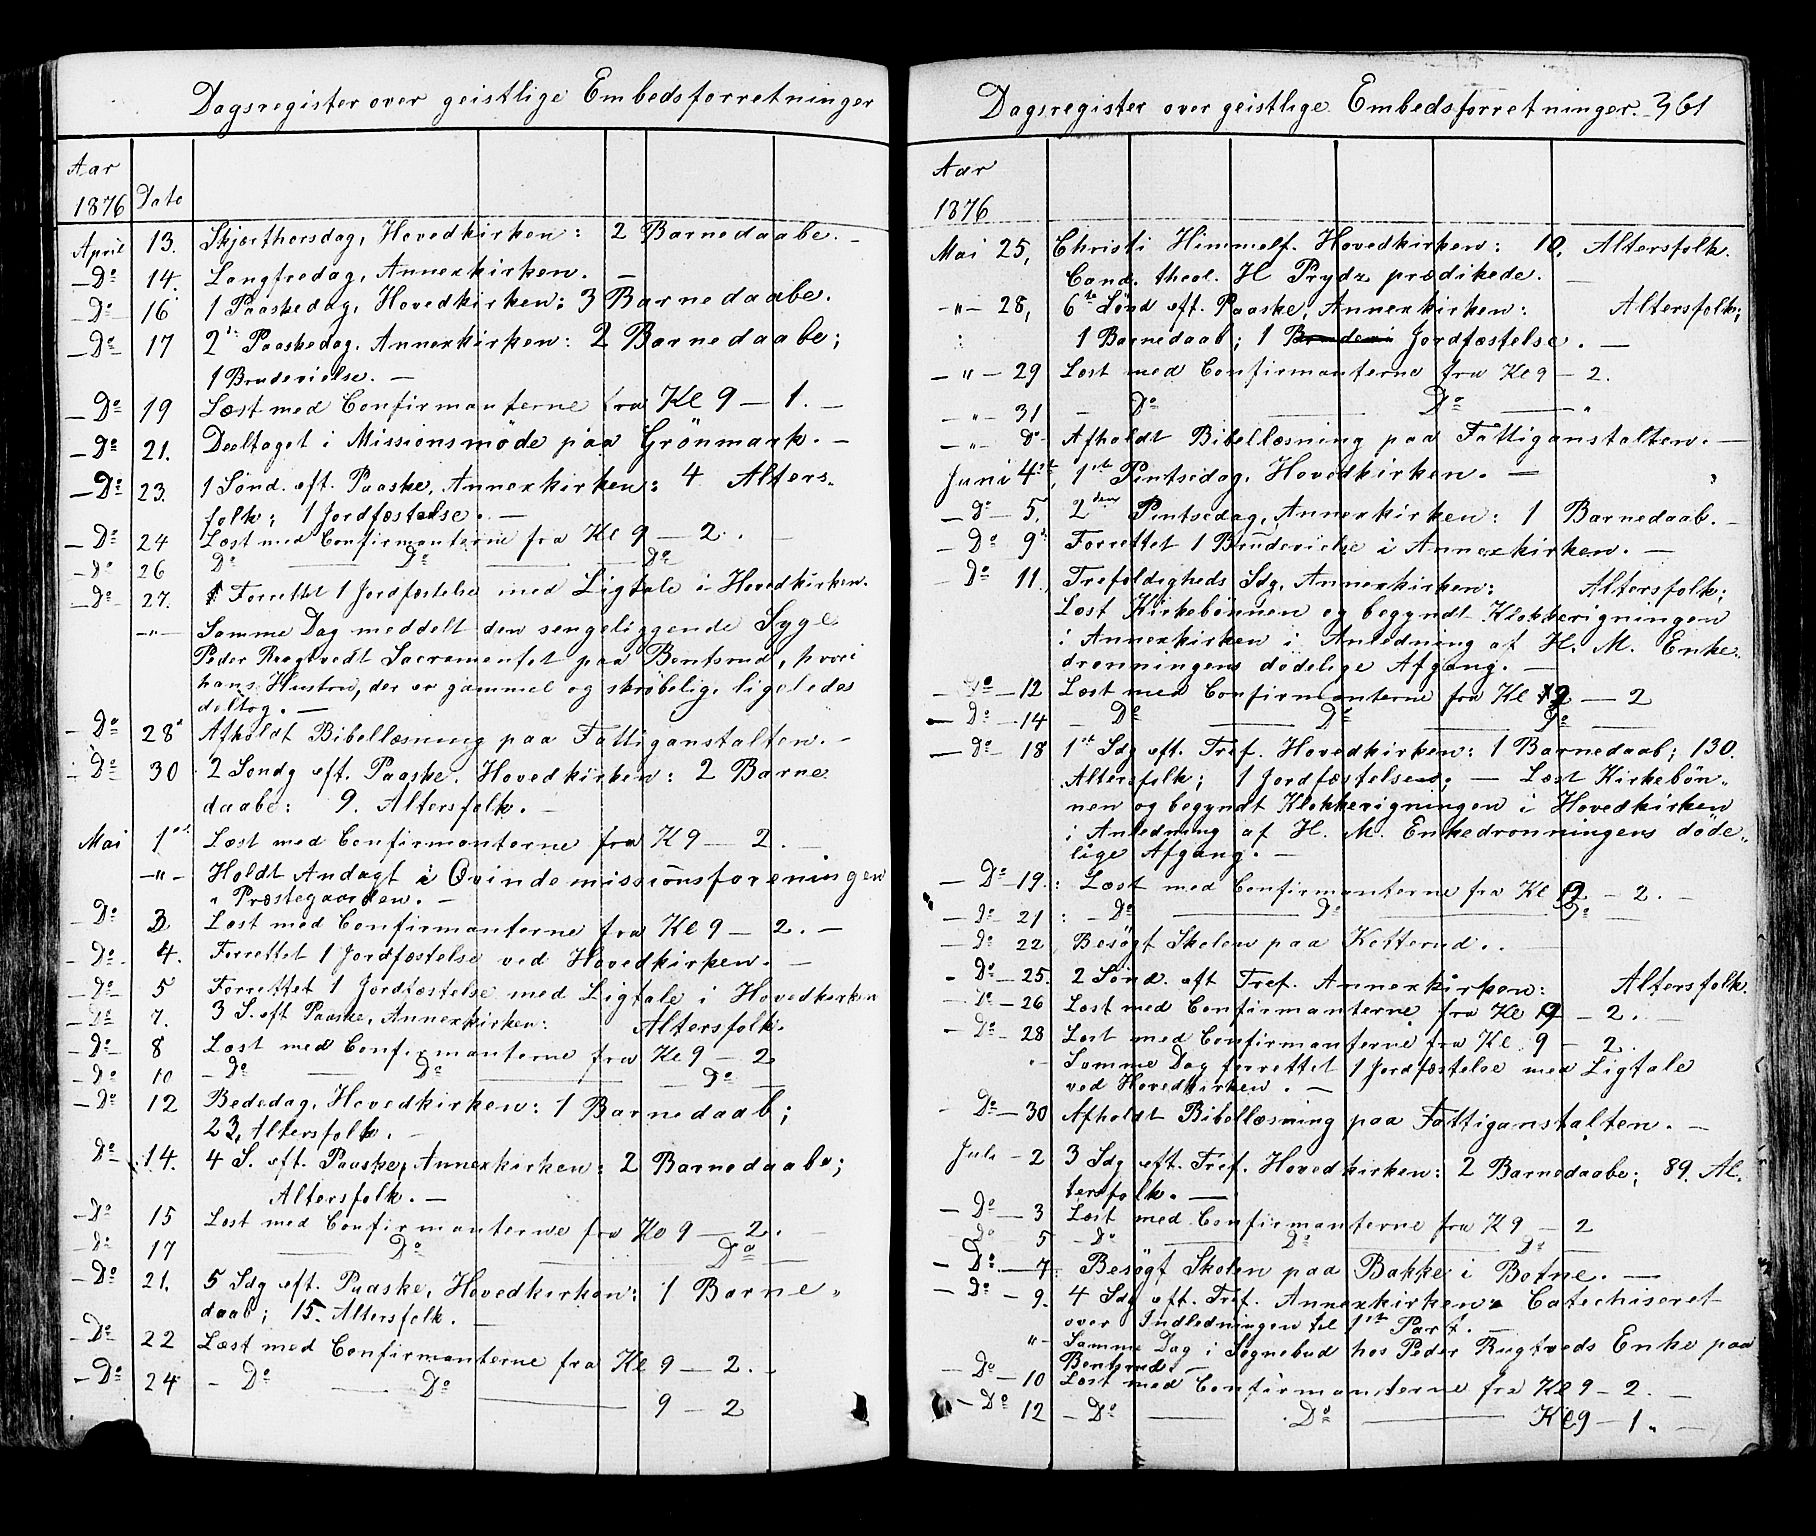 Dagsregister over geistlige Embedsforretninger
Aar
1876 Dato
April 13. Skjærthorsdag, Hovedkirken: 2 Barnedaabe. —
— Do 14. Langfredag, Annexkirken. —
— Do 16 1 Paaskedag, Hovedkirken: 3 Barnedaabe.
— Do 17 2den Paaskedag. Annexkirken: 2 Barnedaabe;
1 Brudevielse. —
— Do 19 Læst med Confirmanterne fra Kl 9 — 1. —
— Do 21. Deeltaget i Missionsmøde paa Grönmark. —
— Do 23. 1 Sönd. eft. Paaske, Annexkirken: 4 Alters-
folk; 1 Jordfæstelse. —
— Do 24 Læst med Confirmanterne fra Kl 9 — 2. —
— Do 26 Do — Do — Do
— Do 27. Forrettet 1 Jordfæstelse med Ligtale i Hovedkirken.
— " — Samme Dag meddelt den sengeliggende Syge
Peder Rugtvedt Sacramentet paa Bentsrud, hvori
hans Hustru, der er gammel og skrøbelig, ligeledes
deltog. —
— Do 28 Afholdt Bibellæsning paa Fattiganstalten. —
— Do 30 2 Søndg eft. Paaske. Hovedkirken: 2 Barne
daabe: 9. Altersfolk. —
Mai 1st Læst med Confirmanterne fra K 9 — 2. —
— " — Holdt Andagt i Qvindemissionsforeningen
i Præstegaarden. —
— Do 3 Læst med Confirmanterne fra Kl 9 — 2. —
— Do 4. Forrettet 1 Jordfæstelse ved Hovedkirken. —
— Do 5 Forrettet 1 Jordfæstelse med Ligtale i Hovedkirken
— Do 7. 3 S. eft Paaske, Annexkirken: Altersfolk.
— Do 8 Læst med Confirmanterne fra Kl 9 — 2
— Do 10 — Do — Do — Do —
— Do 12 Bededag, Hovedkirken: 1 Barnedaab;
23, Altersfolk. —
Do 14. 4 S. eft. Paaske, Annexkirken: 2 Barnedaabe;
Altersfolk. —
— Do 15 Læst med Confirmanterne fra Kl 9 — 2. —
— Do 17 — Do — Do —
— Do 21. 5 Sdg eft. Paaske, Hovedkirken: 1 Barne-
daab; 15. Altersfolk. —
— Do 22 Læst med Confirmanterne fra Kl 9 — 2. —
— Do 24 — Do — Do — 9 — 2
Dagsregister over geistlige Embedsforretninger. 361
Aar
1876
Mai 25, Christi Himmelf. Hovedkirken: 10, Altersfolk.
Cand. theol. H Prydz prædikede. —
— " — 28, 6te Sönd eft. Paaske, Annexkirken: Altersfolk;
1 Barnedaab; 1 Jordfæstelse. —
— " — 29 Læst med Confirmanterne fra Kl 9 — 2.
— " — 31 — Do — Do — "
— " — Do Afholdt Bibellæsning paa Fattiganstalten. —
Juni 4de, 1ste Pintsedag, Hovedkirken. —
— Do — 5, 2den Pintsedag, Annexkirken: 1 Barnedaab. —
— Do 9de Forrettet 1 Brudevielse i Annexkirken. —
— Do 11, Trefoldigheds Sdg, Annexkirken: Altersfolk;
Læst Kirkebönnen og begyndt Klokkerigningen
i Annexkirken i Anledning af H. M. Enke-
dronningens dødelige Afgang. —
— Do — 12 Læst med Confirmanterne fra Kl 9 — 2
— Do — 14 — Do — Do — Do —
— Do — 18 1st Sdg eft. Tref. Hovedkirken: 1 Barnedaab; 130.
Altersfolk; 1 Jordfæstelse; — Læst Kirkebön-
nen og begyndt Klokkerigningen i Hovedkirken
i Anledning af H. M. Enkedronningens døde-
lige Afgang. —
— Do — 19. Læst med Confirmanterne fra Kl 9 — 2. —
— Do — 21 : — Do — Do — Do —
— Do 22 Besøgt Skolen paa Ketterud. —
— Do — 25. 2 Sönd. eft Tref. Annexkirken: Altersfolk.
— Do — 26 Læst med Confirmanterne fra Kl 9 — 2. —
— Do — 28 Læst med Confirmanterne fra Kl. 9 — 2.
" Samme Dag forrettet 1 Jordfæstelse med Ligtale
ved Hovedkirken. —
— Do — 30 Afholdt Bibellæsning paa Fattiganstalten. —
Juli — 2 3 Sdg eft. Tref. Hovedkirken: 2 Barnedaabe; 89. Al-
tersfolk. —
— Do — 3 Læst med Confirmanterne fra K 9 — 2
— Do 5 — Do — Do — Do —
— Do — 7: Besøgt Skolen paa Bakke i Botne. —
— Do — 9. 4 Sdg eft. Tref. Annexkirken. Catechiseret
over Indledningen til 1ste Part. —
" Samme Dag i Sognebud hos Peder Rugtveds Enke paa
Bentsrud. —
— Do — 10 Læst med Confirmanterne fra Kl 9 — 2. —
— Do — 12 — Do — Do — Kl 9 — 1. —